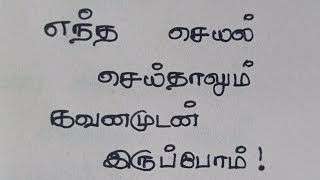 எந்த செயல்
செய்தாலும்
கவனமுடன்
இருப்போம் !